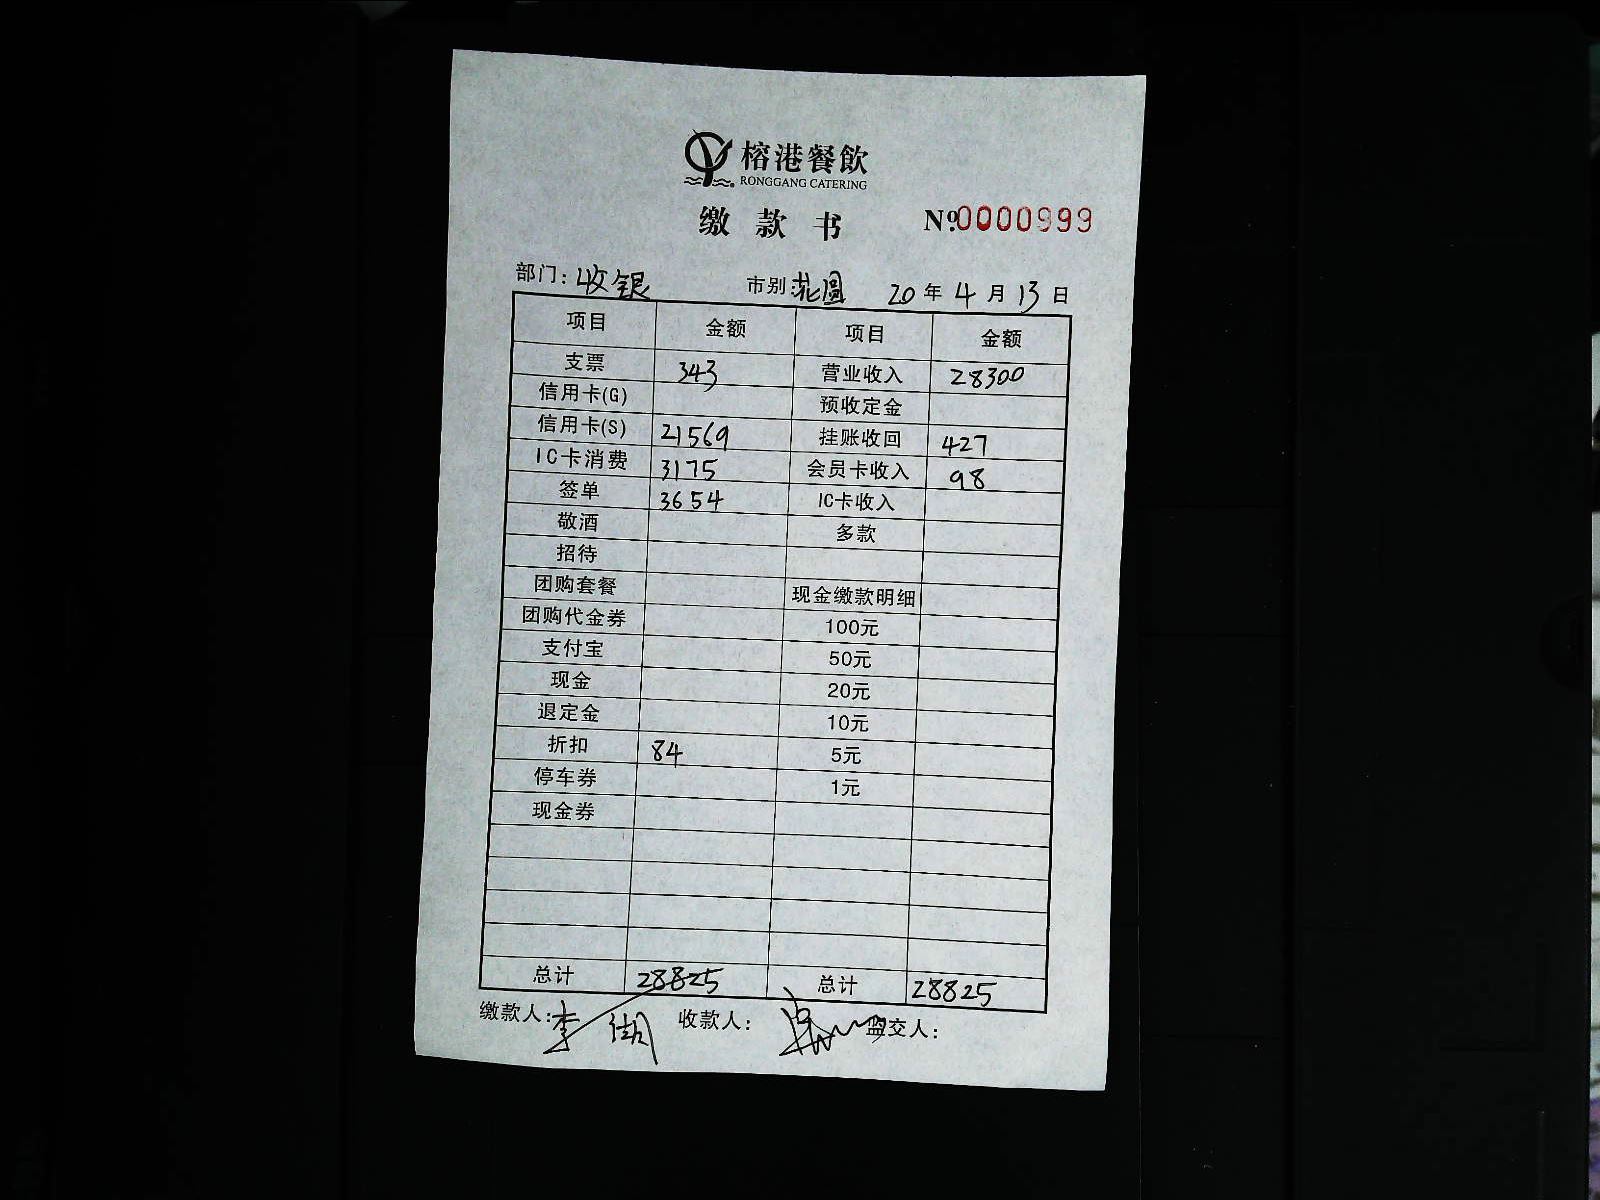 榕港餐飲
RONGGANG CATERING
缴款书 №0000999
部门: 收银 市别: 花園 20年4月13日
项目 金额 项目 金额
支票 343 营业收入 28300
信用卡(G) 预收定金
信用卡(S) 21569 挂账收回 427
IC卡消费 3175 会员卡收入 98
签单 3654 IC卡收入
敬酒 多款
招待
团购套餐 现金缴款明细
团购代金券 100元
支付宝 50元
现金 20元
退定金 10元
折扣 84 5元
停车券 1元
现金券
总计 28825 总计 28825
缴款人: 李 收款人: 监交人: